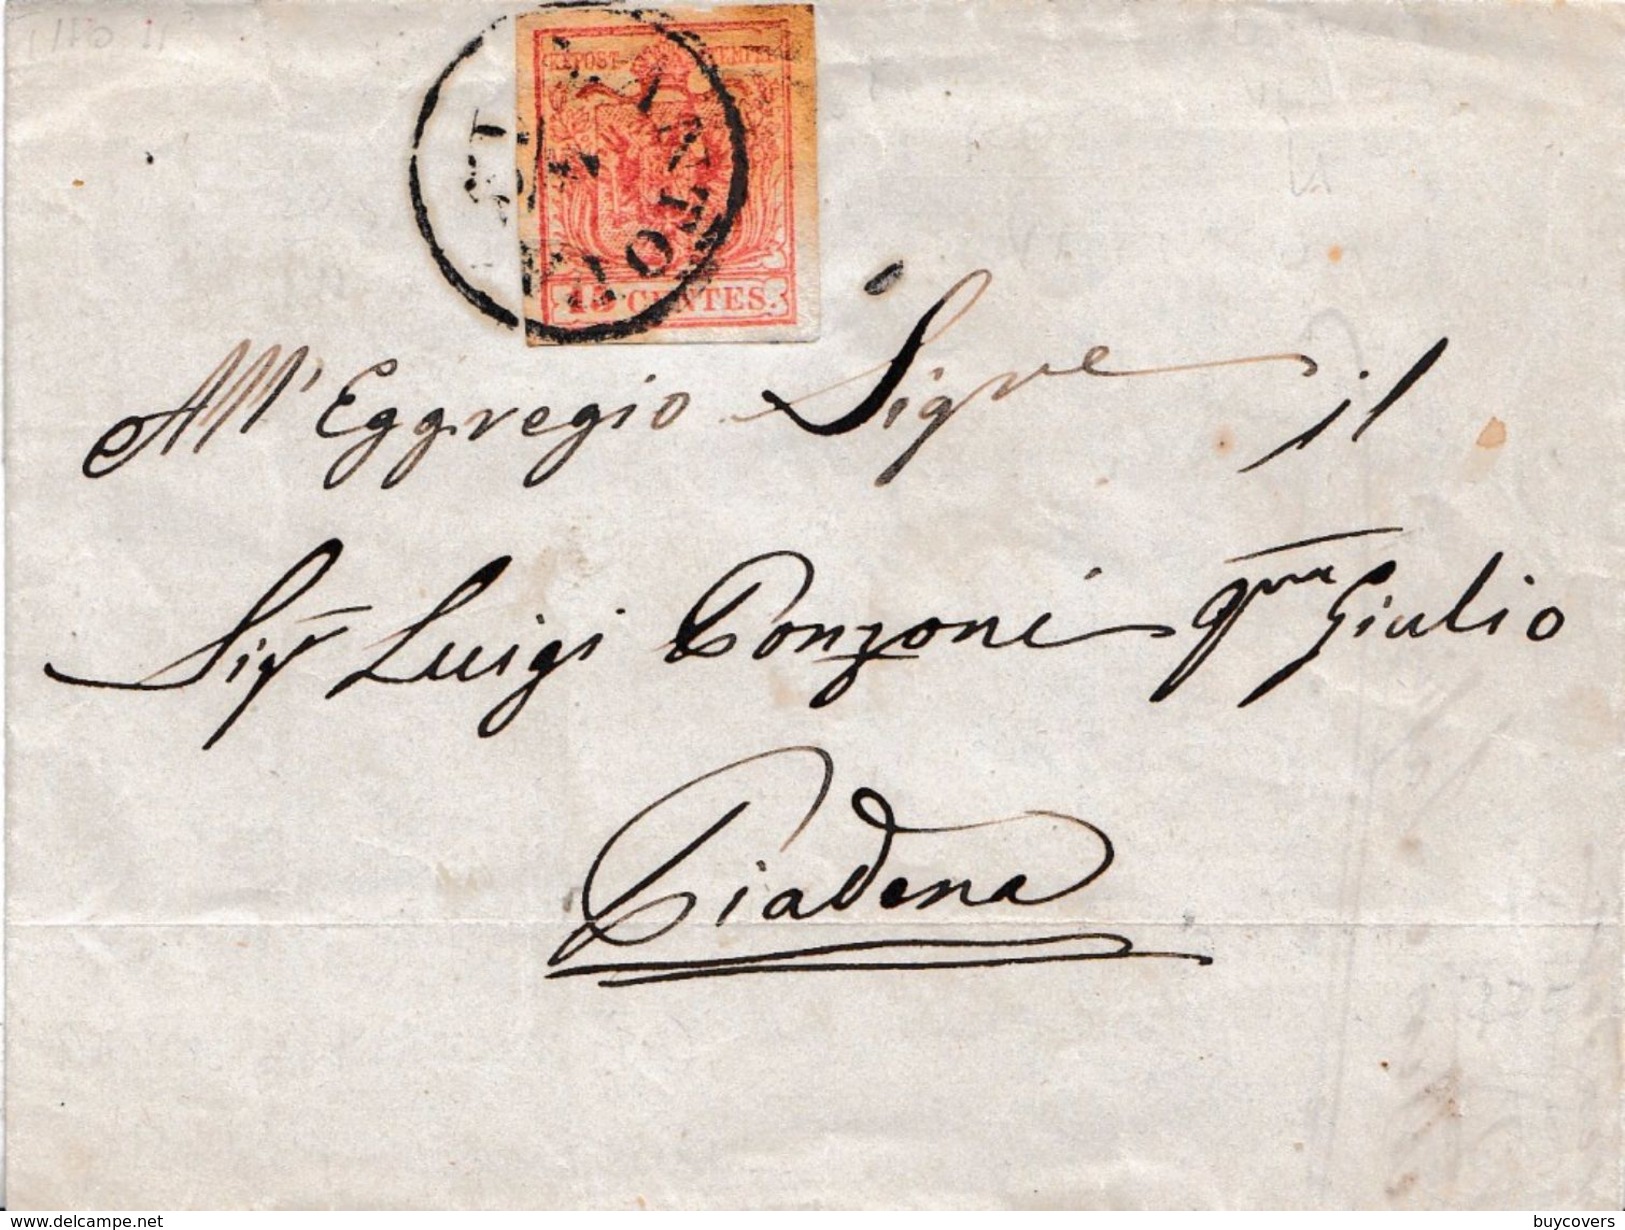 KK POST-STEMPEL
15 CENTES.
MANTOVA
All' Egregio Sigre il
Sigr Luigi Ponzoni qm Giulio
Piadena
www.delcampe.net
buycovers